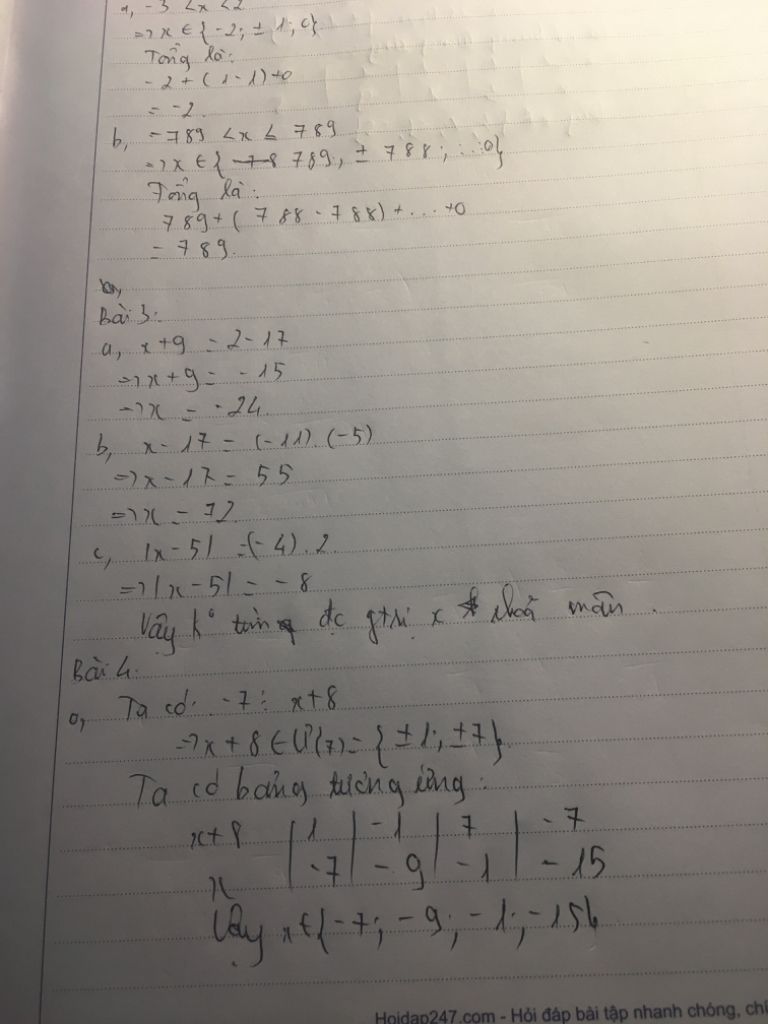 a, -3 < x < 2
=> x ∈ { -2; ± 1; 0}
Tổng là:
-2 + (1-1)+0
= -2.
b, -789 < x ≤ 789
=> x ∈ { 789; ± 788; ...0}
Tổng là:
789+( 788 - 788) + ... +0
= 789.
Bài 3:
a, x+9 = 2-17
=> x+9 = -15
=> x = -24.
b, x - 17 = (-11).(-5)
=> x - 17 = 55
=> x = 72
c, |x-5| =(-4).2
=> |x-5| = -8
Vậy k° tìm đc gtrị x thoả mãn.
Bài 4:
a, Ta có: -7 ⋮ x+8
=> x+8 ∈ Ư(7)= { ±1; ±7}
Ta có bảng tương ứng:
x+8 | 1 | -1 | 7 | -7
x | -7 | -9 | -1 | -15
Vậy x∈{-7; -9; -1; -15}
Hoidap247.com - Hỏi đáp bài tập nhanh chóng, chí